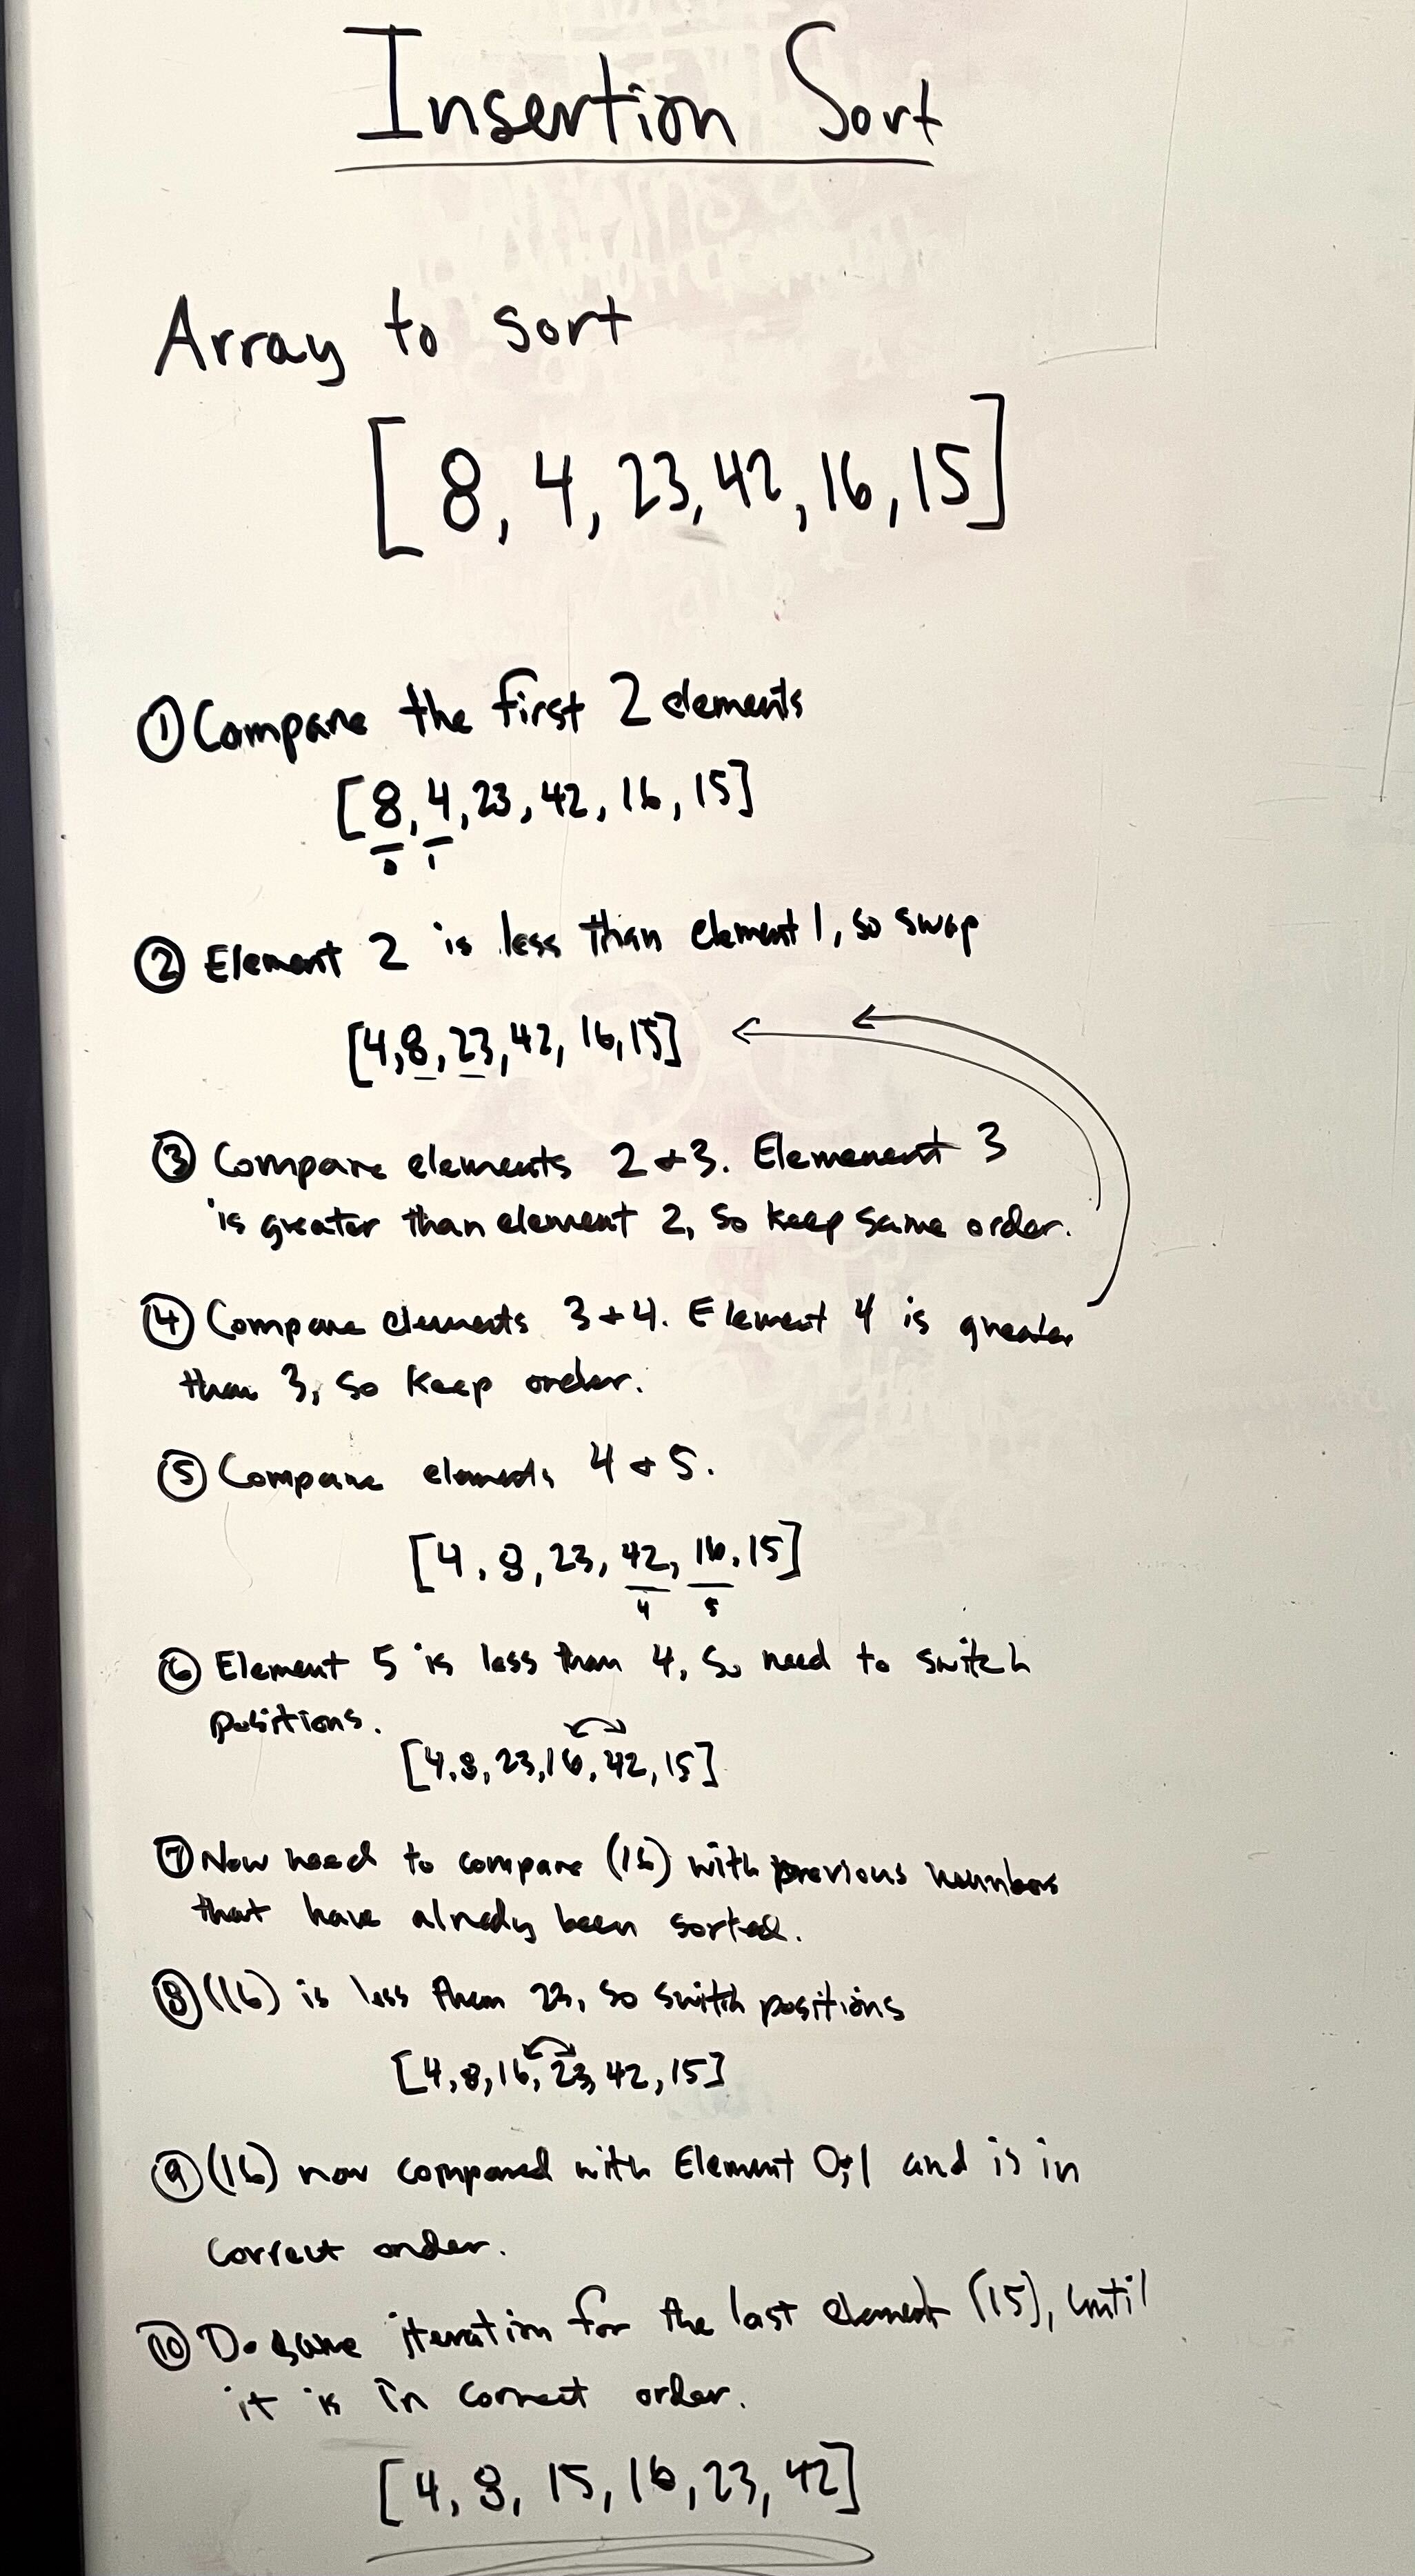 Insertion Sort
Array to sort
[8, 4, 23, 42, 16, 15]
① Compare the first 2 elements
[8, 4, 23, 42, 16, 15]
0 1
② Element 2 is less than element 1, so swap
[4, 8, 23, 42, 16, 15]
③ Compare elements 2 + 3. Elemenent 3
is greater than element 2, so keep same order.
④ Compare elements 3 + 4. Element 4 is greater
than 3, so keep order.
⑤ Compare elements 4 + 5.
[4, 8, 23, 42, 16, 15]
4 5
⑥ Element 5 is less than 4, so need to switch
positions.
[4, 8, 23, 16, 42, 15]
⑦ Now need to compare (16) with previous numbers
that have already been sorted.
⑧ (16) is less them 23, so switch positions
[4, 8, 16, 23, 42, 15]
⑨ (16) now compared with Element 0;1 and is in
correct order.
⑩ Do same iteration for the last element (15), until
it is in correct order.
[4, 8, 15, 16, 23, 42]